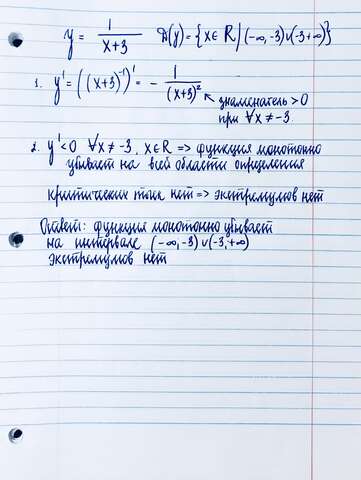 y = 1/(x+3) D(y) = {x∈R | (-∞,-3)∪(-3+∞)}
1. y' = ((x+3)⁻¹)' = - 1/(x+3)²
знаменатель > 0
при ∀x ≠ -3
2. y' < 0 ∀x ≠ -3, x∈R => функция монотонно
убывает на всей области определения
критических точек нет => экстремумов нет
Ответ: функция монотонно убывает
на интервале (-∞,-3)∪(-3,+∞)
экстремумов нет